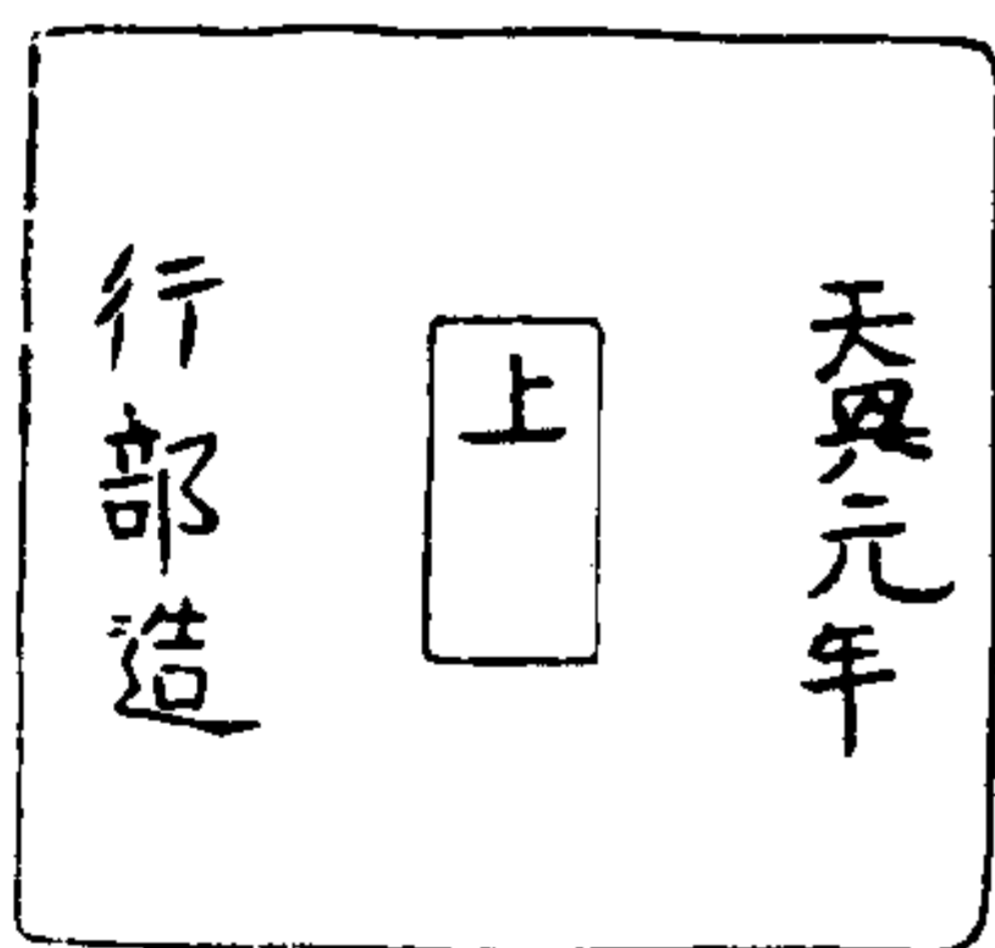 天興元年
上
行部造